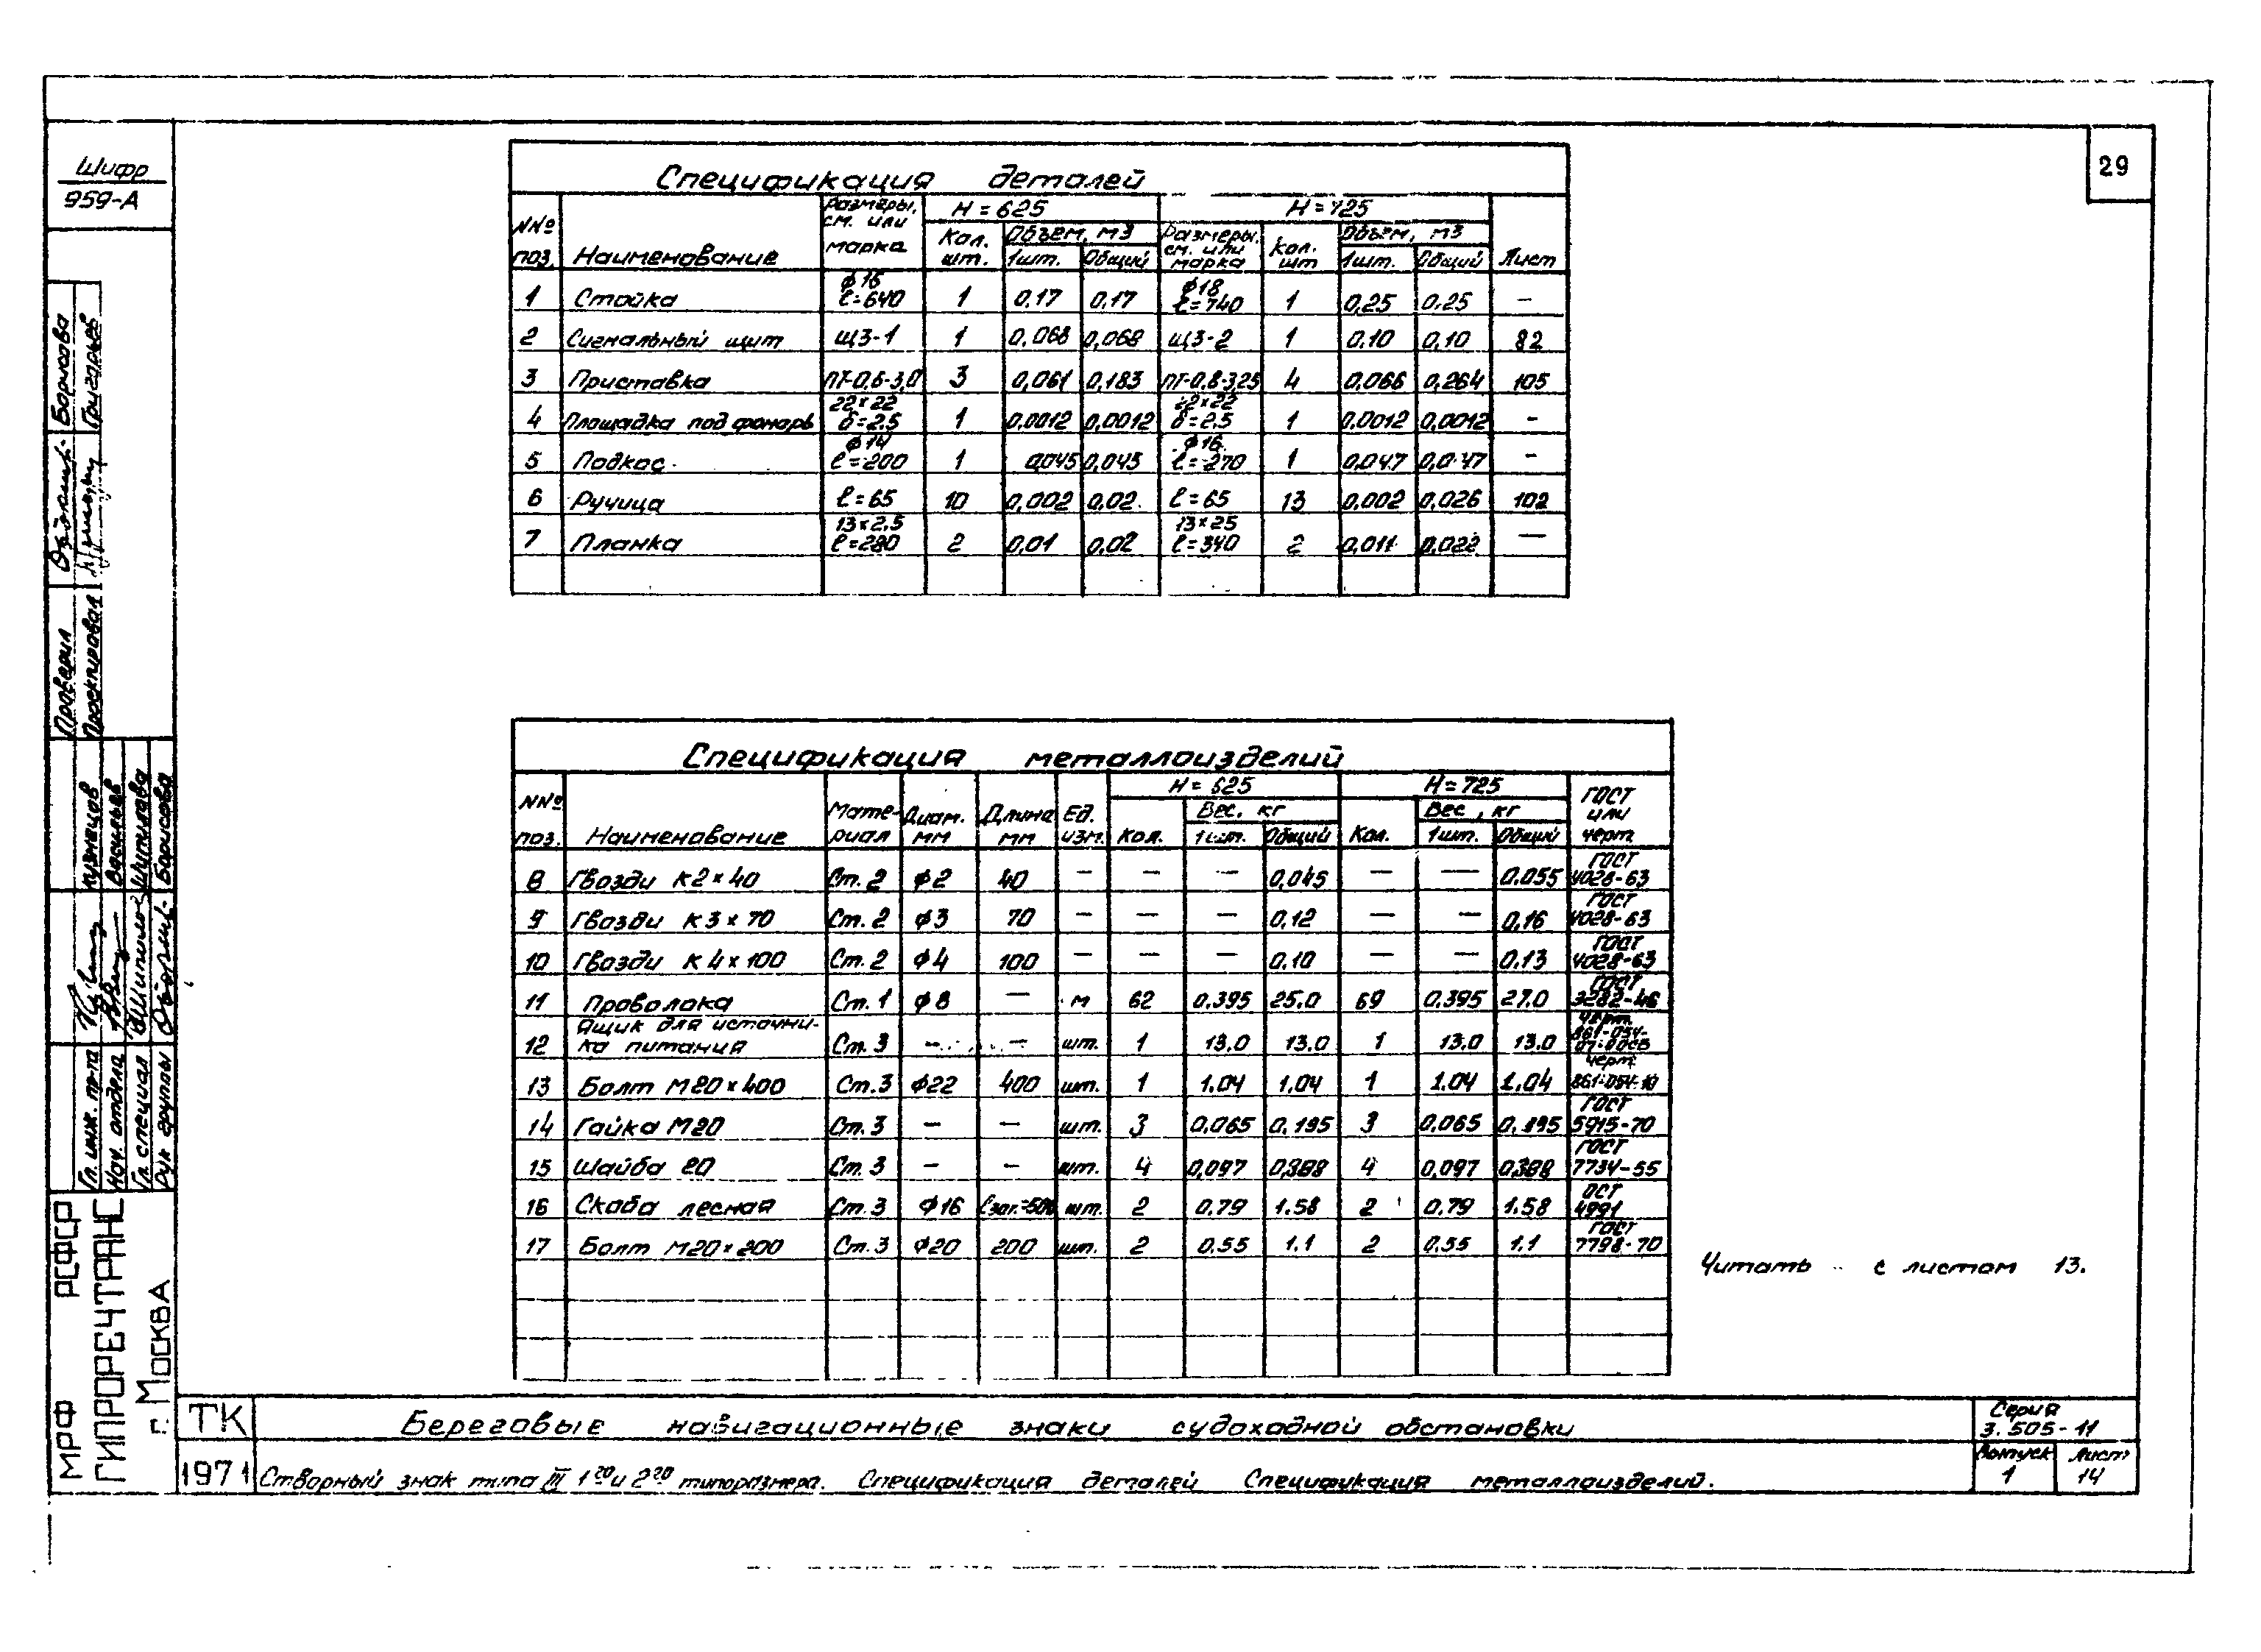 29
Шифр
959-А
Спецификация деталей
NNº поз. Наименование Размеры, см. или марка H = 625 Кол. шт. Объем, м3 1шт. Общий H = 725 Размеры, см. или марка Кол. шт Объем, м3 1шт. Общий Лист
1 Стойка ϕ16 ℓ=640 1 0,17 0,17 ϕ18 ℓ=740 1 0,25 0,25 —
2 Сигнальный щит щ3-1 1 0,068 0,068 щ3-2 1 0.10 0,10 82
3 Приставка ПТ-0,6-3,0 3 0,061 0,183 ПТ-0,8-3,25 4 0,066 0,264 105
4 Площадка под фонарь 22×22 δ=2,5 1 0,0012 0,0012 22×22 δ=2,5 1 0,0012 0,0012 -
5 Подкос ϕ14 ℓ=200 1 0,045 0,045 ϕ16 ℓ=270 1 0,047 0,047 -
6 Ручица ℓ=65 10 0,002 0,02 ℓ=65 13 0,002 0,026 102
7 Планка 13×2,5 ℓ=280 2 0,01 0,02 13×25 ℓ=340 2 0,011 0,022 —
Спецификация металлоизделий
NNº поз. Наименование Мате-риал Диам. мм Длина мм Ед. изм. H = 625 Кол. Вес, кг 1шт. Общий H = 725 Кол. Вес, кг 1шт. Общий ГОСТ или черт.
8 Гвозди К2×40 Ст. 2 ϕ2 40 — — — 0,045 — — 0.055 ГОСТ 4028-63
9 Гвозди К3×70 Ст. 2 ϕ3 70 — — — 0,12 — — 0,16 ГОСТ 4028-63
10 Гвозди К4×100 Ст. 2 ϕ4 100 — — — 0.10 — — 0.13 ГОСТ 4028-63
11 Проволока Ст. 1 ϕ8 — м 62 0.395 25.0 69 0.395 27.0 ГОСТ 3282-46
12 Ящик для источни-ка питания Ст. 3 — — шт. 1 13.0 13.0 1 13.0 13.0 черт.
13 Болт М20×400 Ст.3 ϕ22 400 шт. 1 1.04 1,04 1 1.04 1.04 черт. 861-054-10
14 Гайка М20 Ст.3 — — шт. 3 0,065 0,195 3 0,065 0,195 ГОСТ 5915-70
15 Шайба 20 Ст.3 — — шт. 4 0,097 0,388 4 0,097 0,388 ГОСТ 7734-55
16 Скоба лесная Ст.3 ϕ16 ℓзаг.=500 шт. 2 0.79 1.58 2 0.79 1.58 ОСТ 4991
17 Болт М20×200 Ст.3 ϕ20 200 шт. 2 0.55 1.1 2 0.55 1.1 ГОСТ 7798-70
Читать с листом 13.
Проверил Борисова
Проектировал Григорьев
Гл. инж. пр-та Кузнецов
Нач. отдела Васильев
Гл. специал Шипилова
Рук группы Борисова
МРФ РСФСР
ГИПРОРЕЧТРАНС
г. Москва
ТК
Береговые навигационные знаки судоходной обстановки
Серия
3.505-11
1971
Створный знак типа III 1го и 2го типоразмера. Спецификация деталей Спецификация металлоизделий.
Выпуск 1
Лист 14